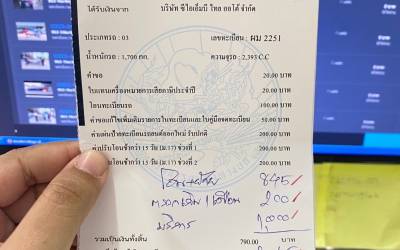 ได้รับเงินจาก บริษัท ซีไอเอ็มบี ไทย ออโต้ จำกัด
ประเภทรถ : 03 เลขทะเบียน : ผม 2251
น้ำหนักรถ : 1,700 กก. ความจุรถ : 2,393 C.C
ค่าคำขอ 20.00 บาท
ใบแทนเครื่องหมายการเสียภาษีประจำปี 20.00 บาท
โอนทะเบียนรถ 100.00 บาท
ค่าขอแก้ไขเพิ่มเติมรายการในทะเบียนและใบคู่มือจดทะเบียน 50.00 บาท
ค่าแผ่นป้ายทะเบียนรถยนต์ออกใหม่ รับปกติ 200.00 บาท
ค่าปรับโอนช้ากว่า 15 วัน (ม.17) ช่วงที่ 1 200.00 บาท
โอนช้ากว่า 15 วัน (ม.17) ช่วงที่ 2 200.00 บาท
845/
200/
บริการ 1,000/
รวมเป็นเงินทั้งสิ้น 790.00 บาท